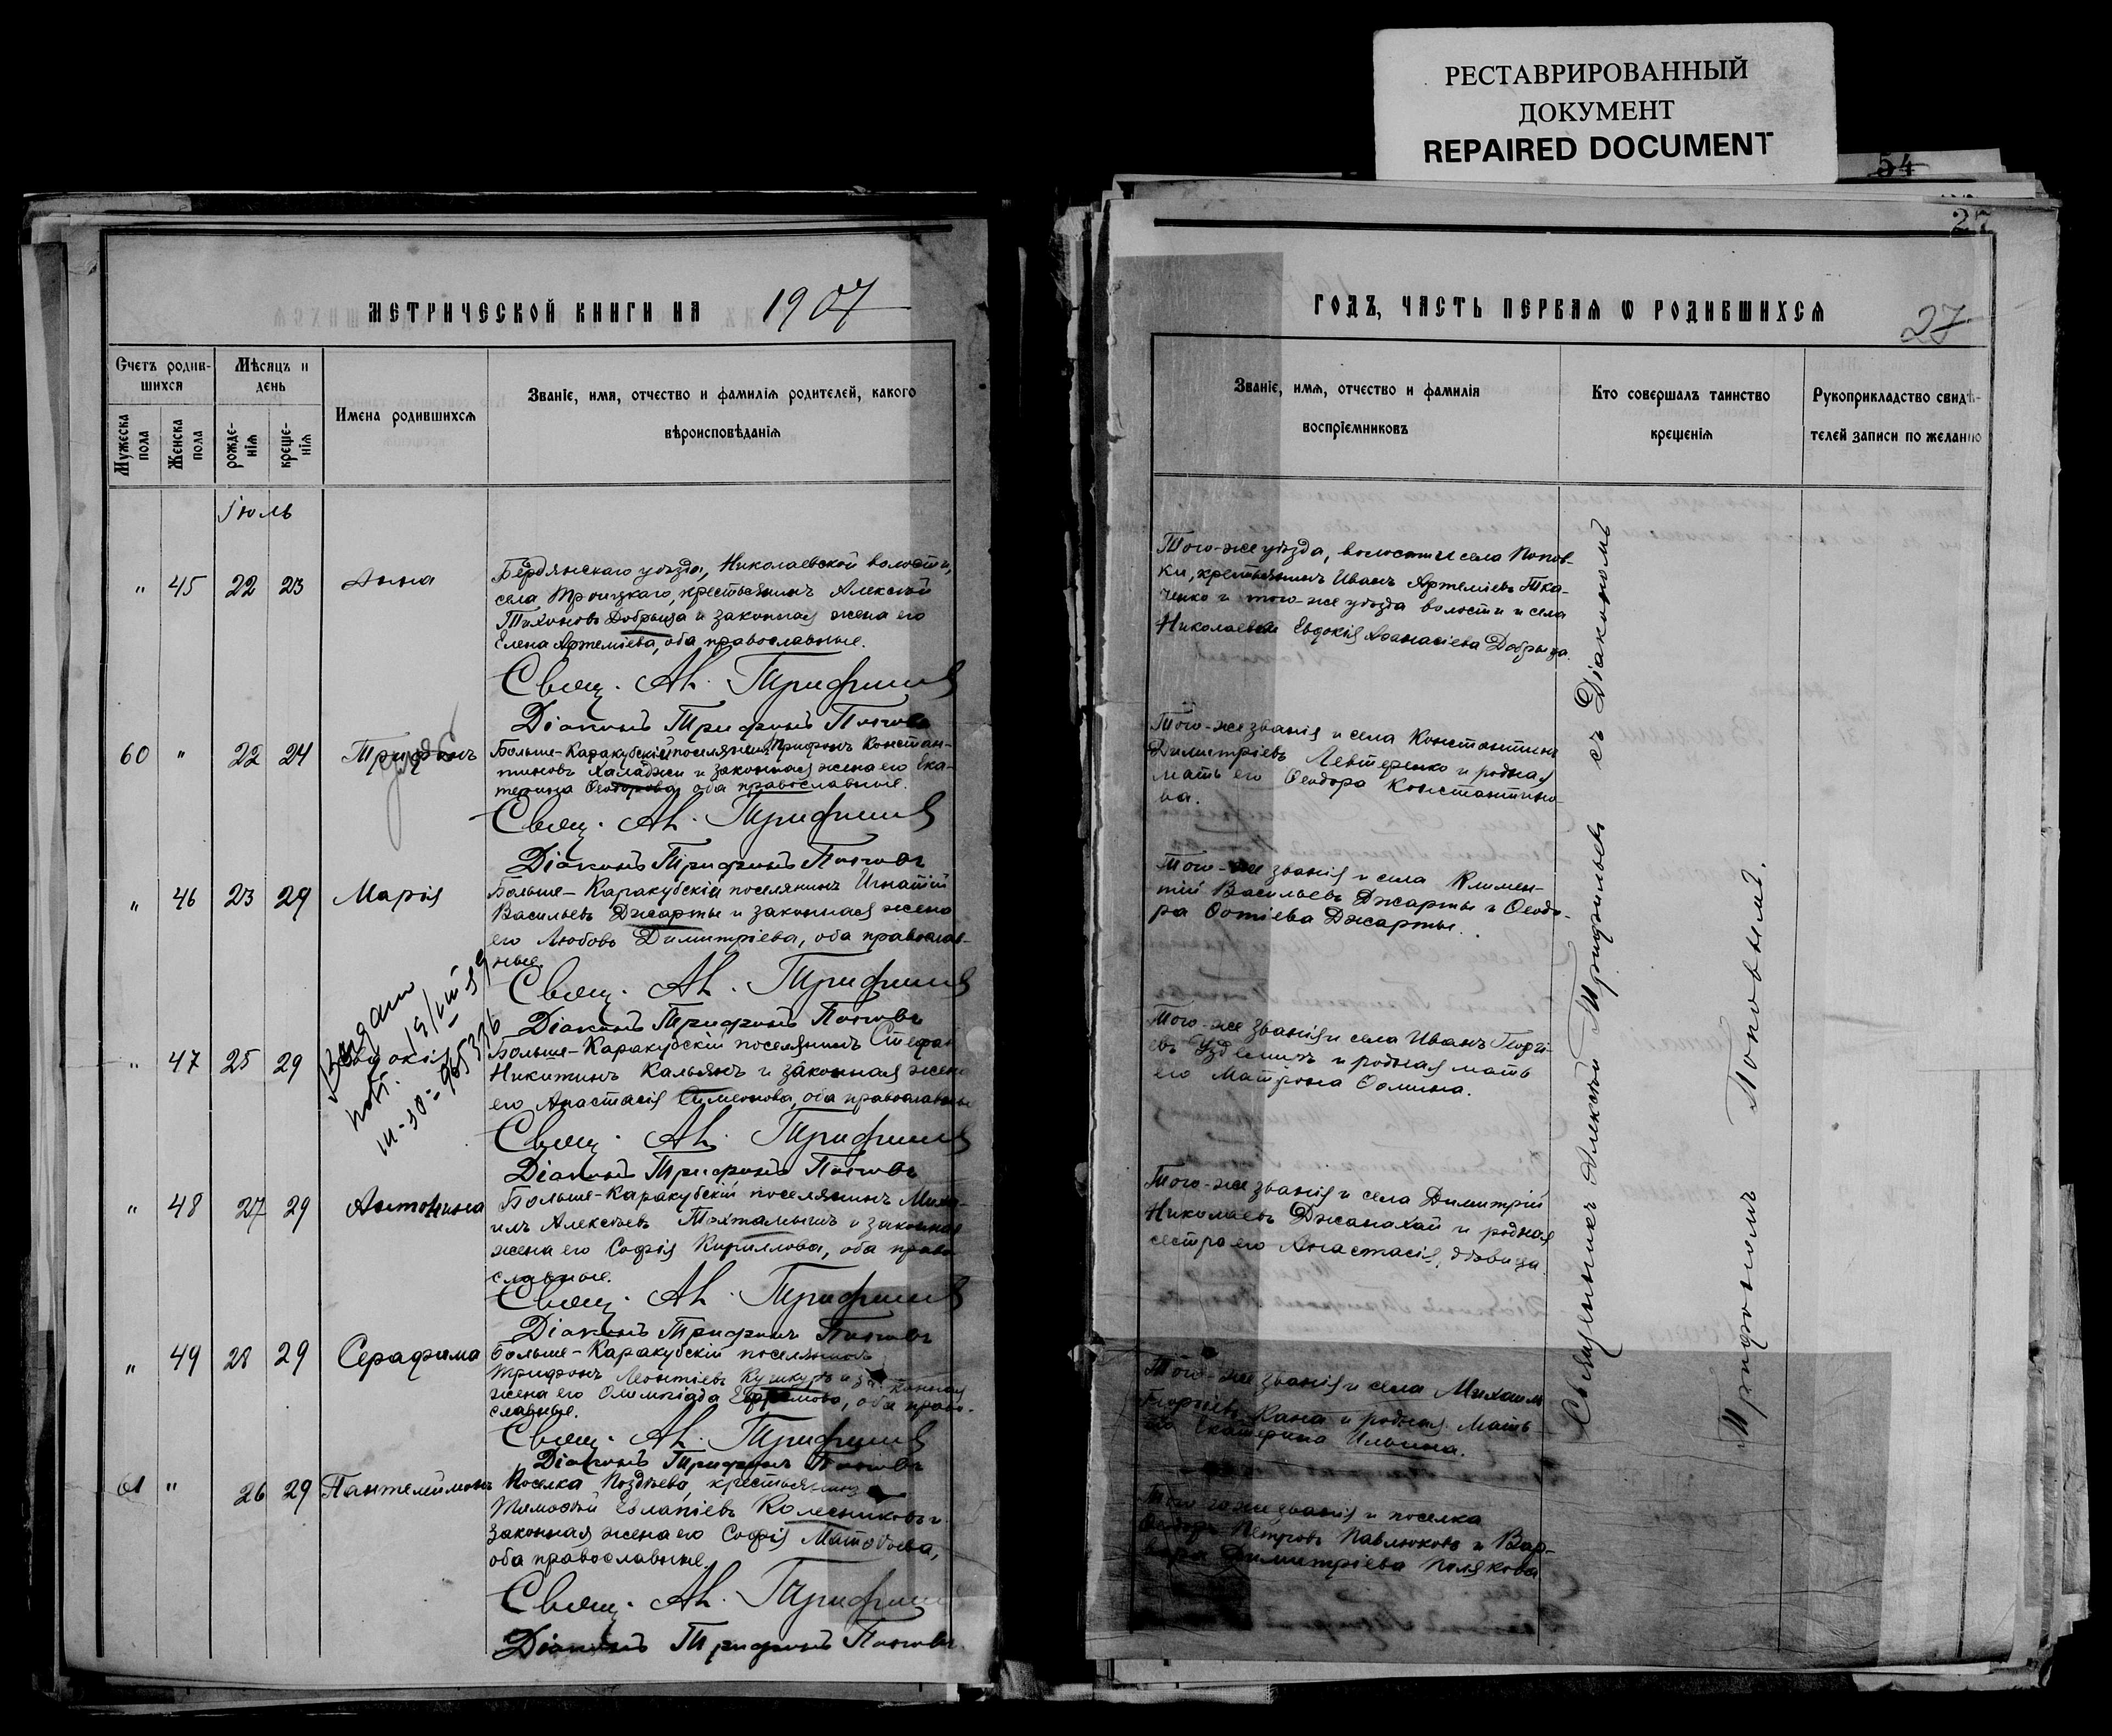 РЕСТАВРИРОВАННЫЙ
ДОКУМЕНТ
REPAIRED DOCUMENT
54
27
МЕТРИЧЕСКОЙ КНИГИ НА 1907
Счетъ родив-
шихся
Мѣсяцъ и
день
Имена родившихся
Званіе, имя, отчество и фамилія родителей, какого
вѣроисповѣданія
Мужеска
пола
Женска
пола
рожде-
нія
креще-
нія
Іюль
" 45 22 23 Анна
Бердянскаго уѣзда, Николаевской волости,
села Троицкаго, крестьянинъ Алексѣй
Тихоновъ Добрыда и законная жена его
Елена Артеміева, оба православные.
Свящ. Ал. Трифильевъ
Діаконъ Трифонъ Поповъ
60 " 22 24 Трифонъ
Больше-Каракубскій поселянинъ Трифонъ Констан-
тиновъ Халаджи и законная жена его Ека-
терина Ѳеодорова, оба православные.
Свящ. Ал. Трифильевъ
Діаконъ Трифонъ Поповъ
" 46 23 29 Марія
Больше-Каракубскій поселянинъ Игнатій
Васильевъ Джарты и законная жена
его Любовь Димитріева, оба православ-
ные.
Свящ. Ал. Трифильевъ
Діаконъ Трифонъ Поповъ
" 47 25 29 Евдокія
Больше-Каракубскій поселянинъ Стефан
Никитинъ Кальянъ и законная жена
его Анастасія Симеонова, оба православные
Свящ. Ал. Трифильевъ
Діаконъ Трифонъ Поповъ
" 48 27 29 Антонина
Больше-Каракубскій поселянинъ Миха-
илъ Алексѣевъ Тохтамышъ и законная
жена его Софія Кириллова, оба право
славные.
Свящ. Ал. Трифильевъ
Діаконъ Трифонъ Поповъ
" 49 28 29 Серафима
Больше-Каракубскій поселянинъ
Трифонъ Леонтіевъ и законная
жена его Олимпіада Ефремова, оба право-
славные.
Свящ. Ал. Трифильевъ
Діаконъ Трифонъ Поповъ
61 " 26 29 Пантелеимонъ
Поселка Поздѣева, крестьянинъ
Тимофѣй Евлапіевъ Колесниковъ и
законная жена его Софія Матѳѣева,
оба православные.
Свящ. Ал. Трифильевъ
Діаконъ Трифонъ Поповъ
ГОДЪ, ЧАСТЬ ПЕРВАЯ Ѡ РОДИВШИХСЯ
27
Званіе, имя, отчество и фамилія
воспріемниковъ
Кто совершалъ таинство
крещенія
Рукоприкладство свидѣ-
телей записи по желанію
Того-же уѣзда, волости и села Попов-
ки, крестьянинъ Иванъ Артеміевъ Тка-
ченко и того-же уѣзда волости и села
Николаевки Евдокія Аѳанасіева Добрыда.
Того-же званія и села Константинъ
Димитріевъ Левтеренко и родная
мать его Ѳеодора Константино-
ва.
Того-же званія и села Климен-
тій Васильевъ Джарты и Ѳеодо-
ра Фотіева Джарты.
Того-же званія и села Иванъ Георгі-
евъ Узденичъ и родная мать
его Матрона Ѳомина.
Того-же званія и села Димитрій
Николаевъ Джанахай и родная
сестра его Анастасія, дѣвица.
Того-же званія и села Михаилъ
Георгіевъ Кана и родная мать
его Екатерина Ильина.
Того-же званія и поселка
Ѳеодоръ Петровъ Павлюковъ и Вар-
вара Димитріева Полякова
Священникъ Алексѣй Трифильевъ съ Діакономъ
Трифономъ Поповымъ.